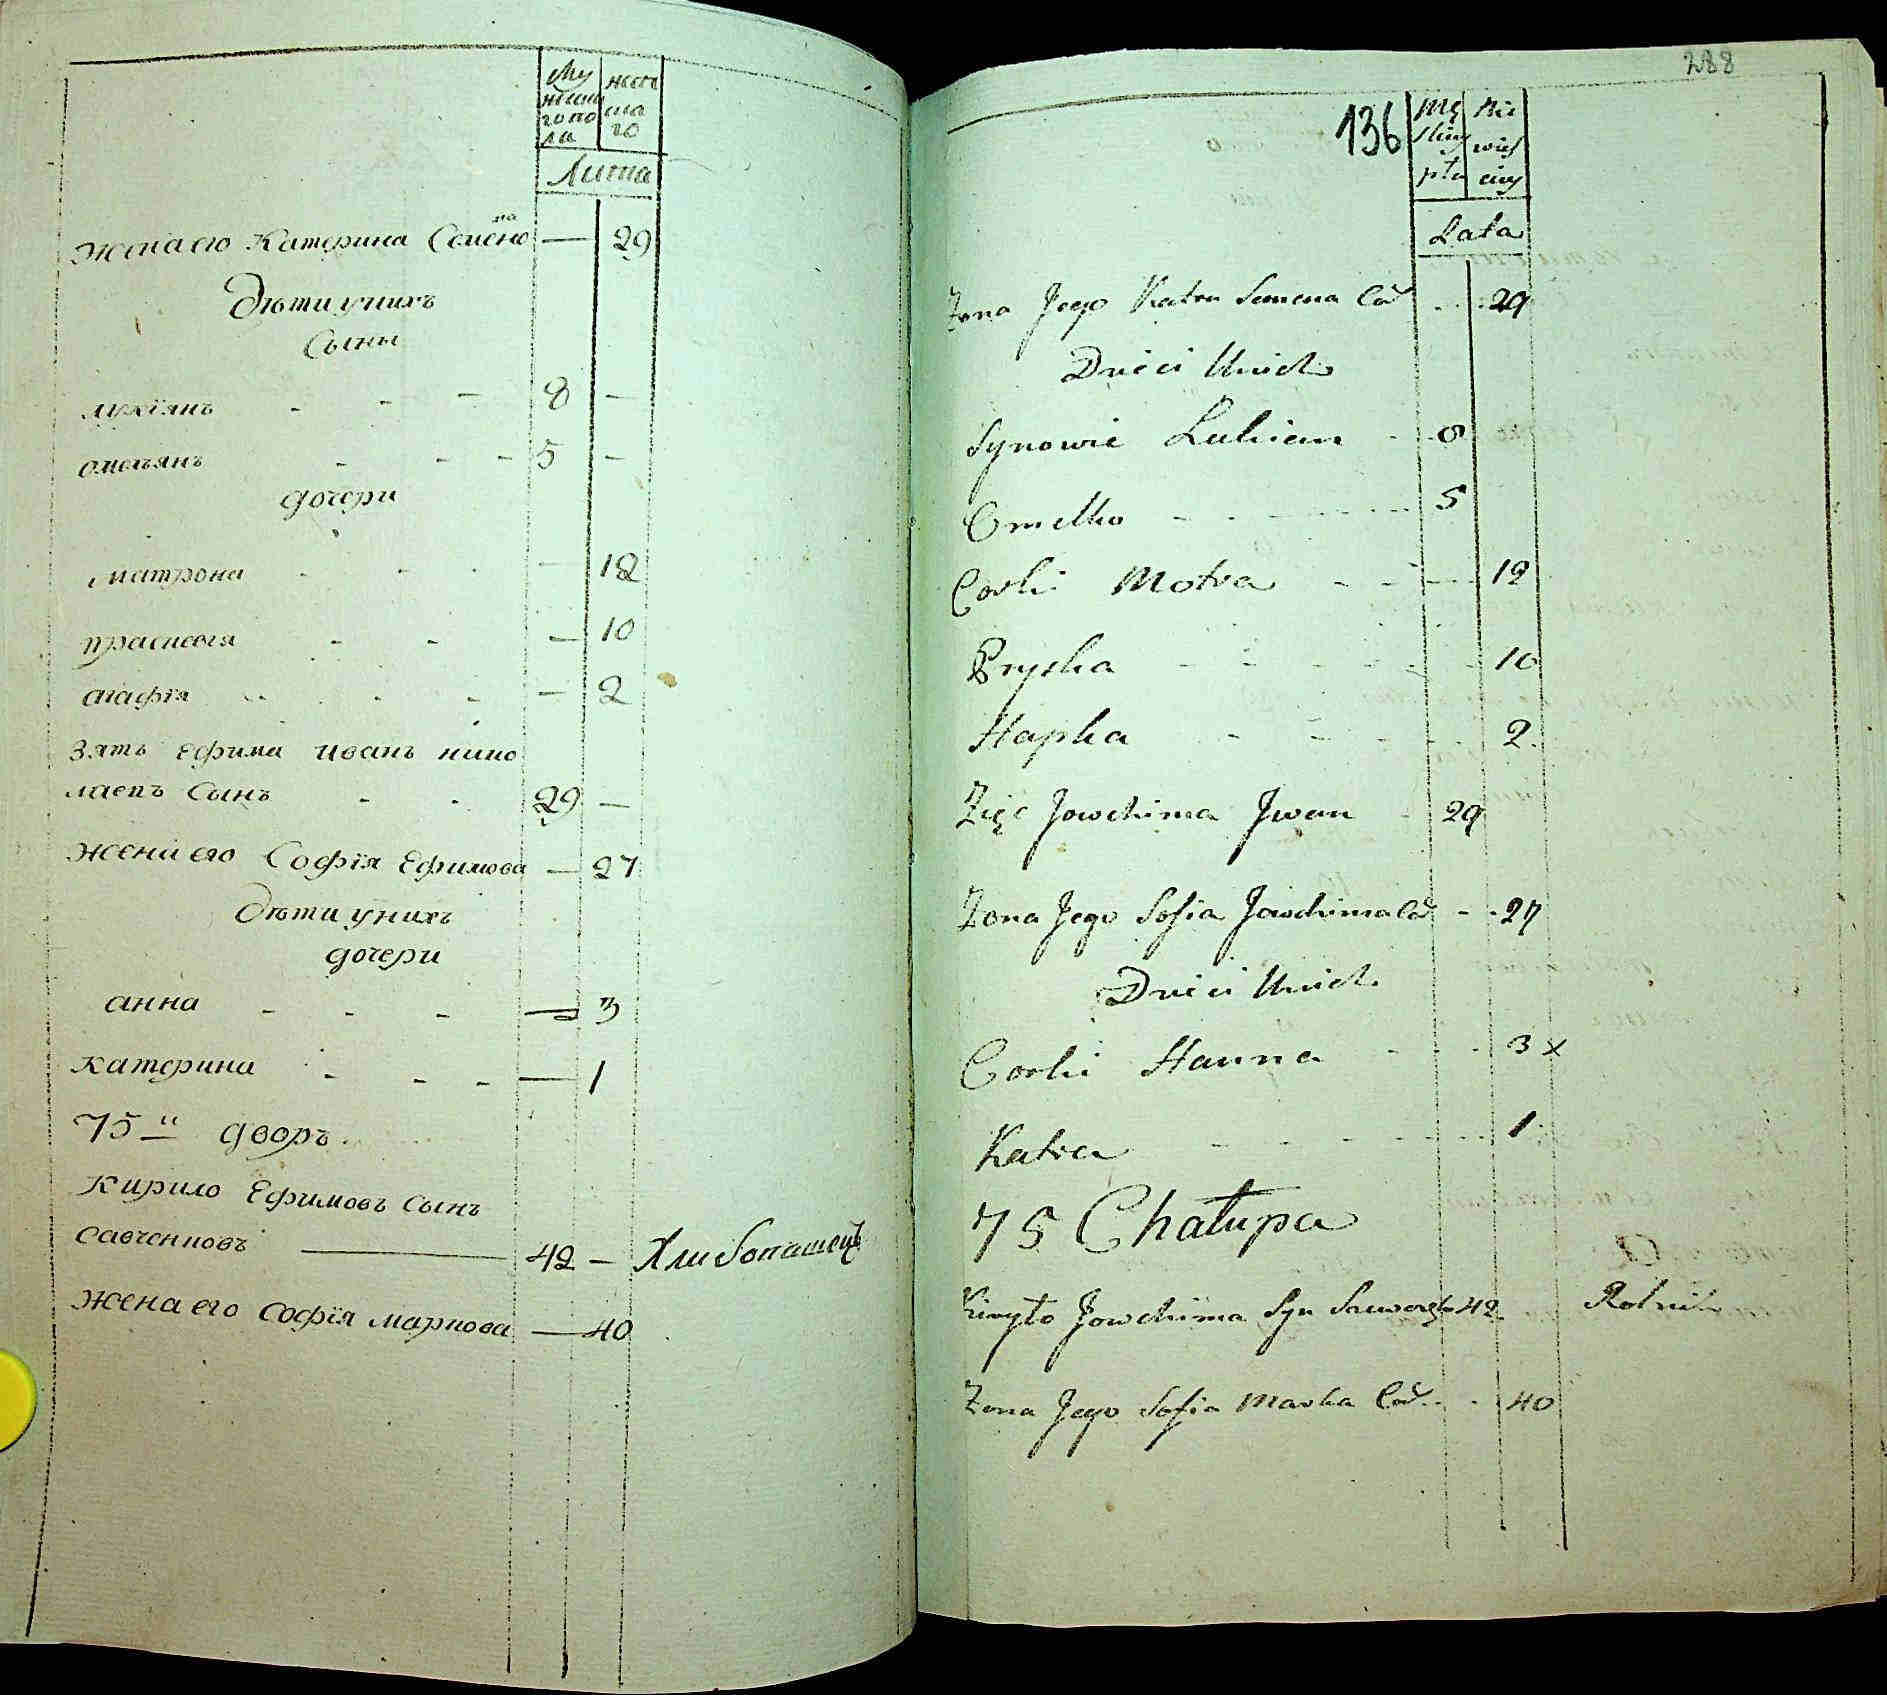 Му жеска
жеска го по го
ла
Лита
жена его Катерина Семено
ва
— 29
Дѣти унихъ
Сыны
лукїянъ - - - 8 —
омельянъ - - - 5 —
дочери
матрона - - - — 12
прасковїя - - — 10
агафїя - - - — 2
Зять Ефима иванъ нико
лаевъ сынъ - - 29 —
жена его Софїя Ефимова — 27
Дѣти унихъ
дочери
анна - - - — 3
катерина - - - — 1
75 й дворъ
кирило Ефимовъ сынъ
савченковъ — 42 — Хлибопашецъ
жена его софїя маркова — 40
288
136
Mę
skiey
płci
Nie
wieś
ciey
Lata
Żona Jego Katra Semena Cór - - 29
Dzieci Unich
Synowie Lukian - - 8
Omelko - - - - 5
Corki Motra - - - 12
Pryska - - - - 10
Hapka - - - - 2.
Zięć Jowchima Jwan - 29
Żona Jego Sofia Jowchima Cór - - 27
Dzieci Unich
Corki Hanna - - - 3 x
Katra - - - - 1
75 Chałupa
Kiryło Jowchima Syn 42 Rolnik
Żona Jego Sofia Marka Cór - - 40